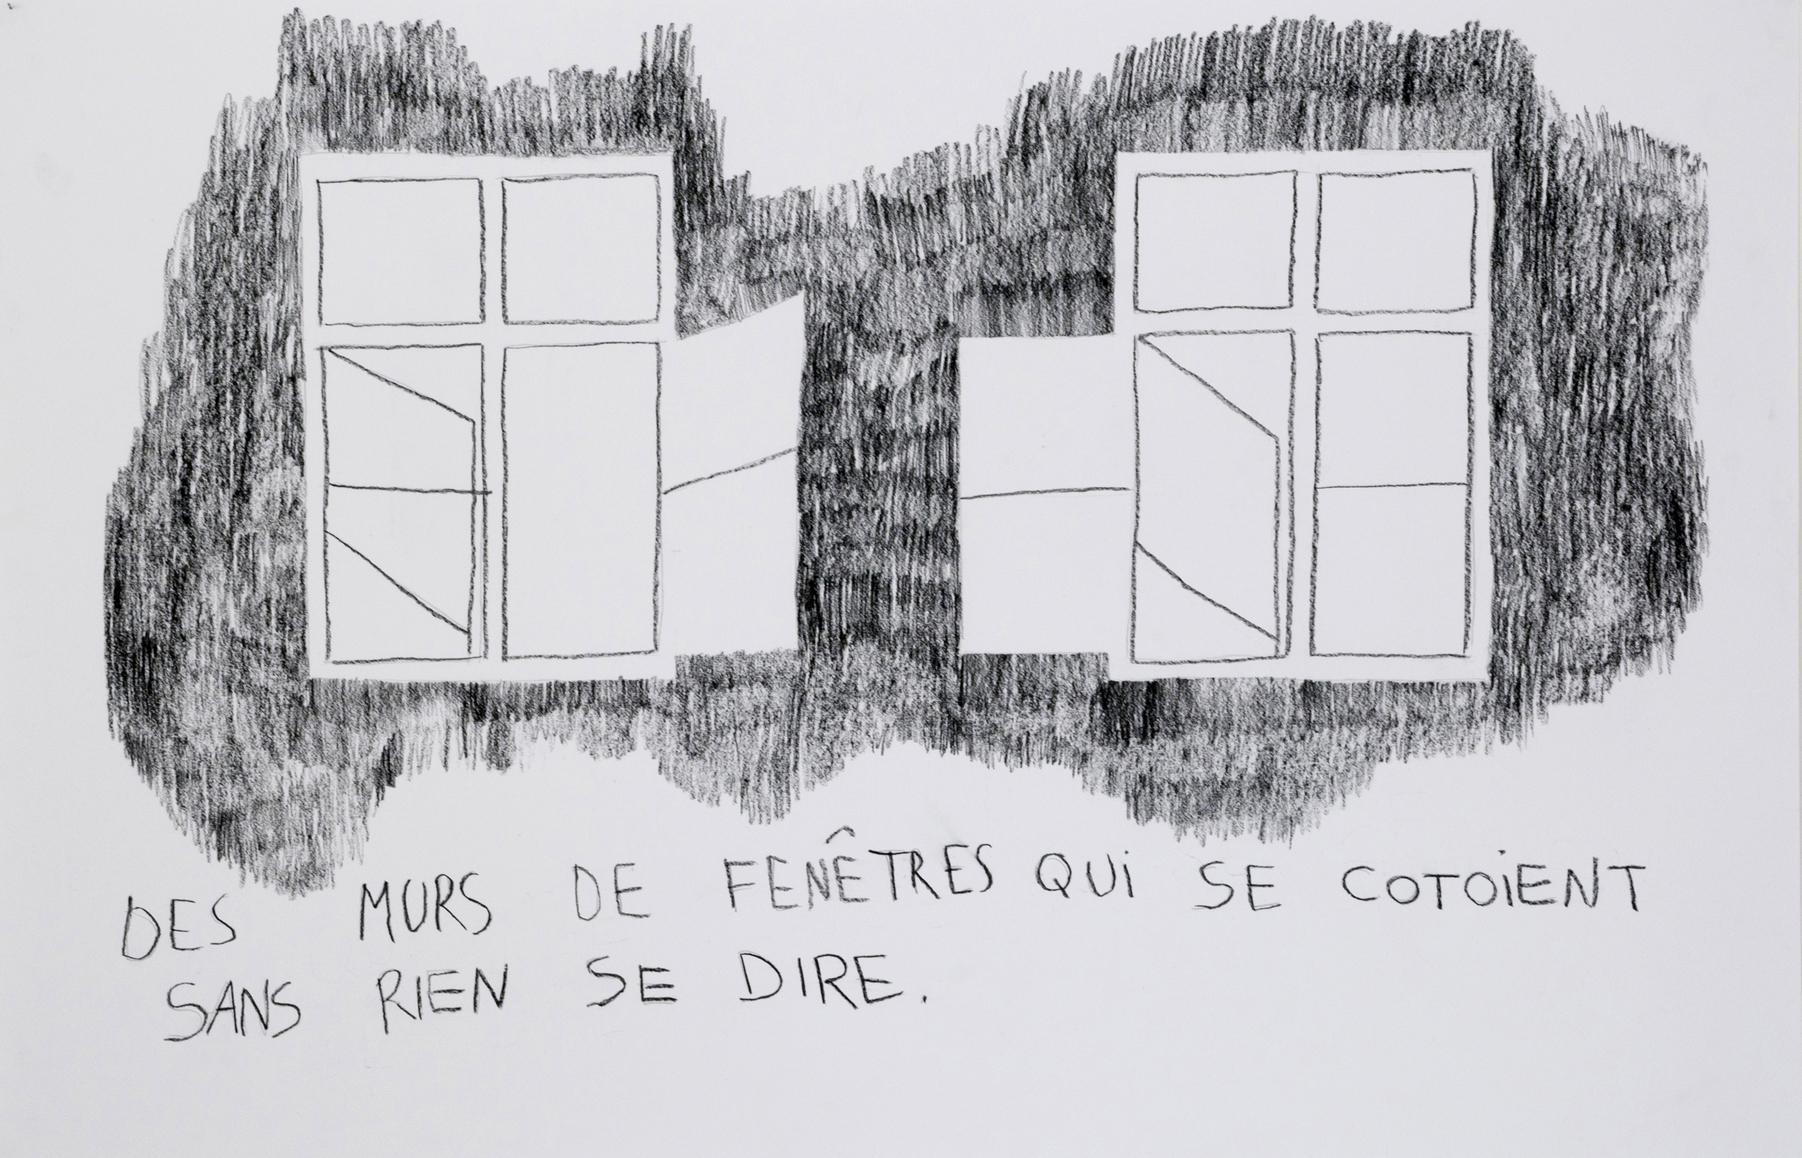 DES MURS DE FENÊTRES QUi SE COTOiENT
SANS RIEN SE DIRE.